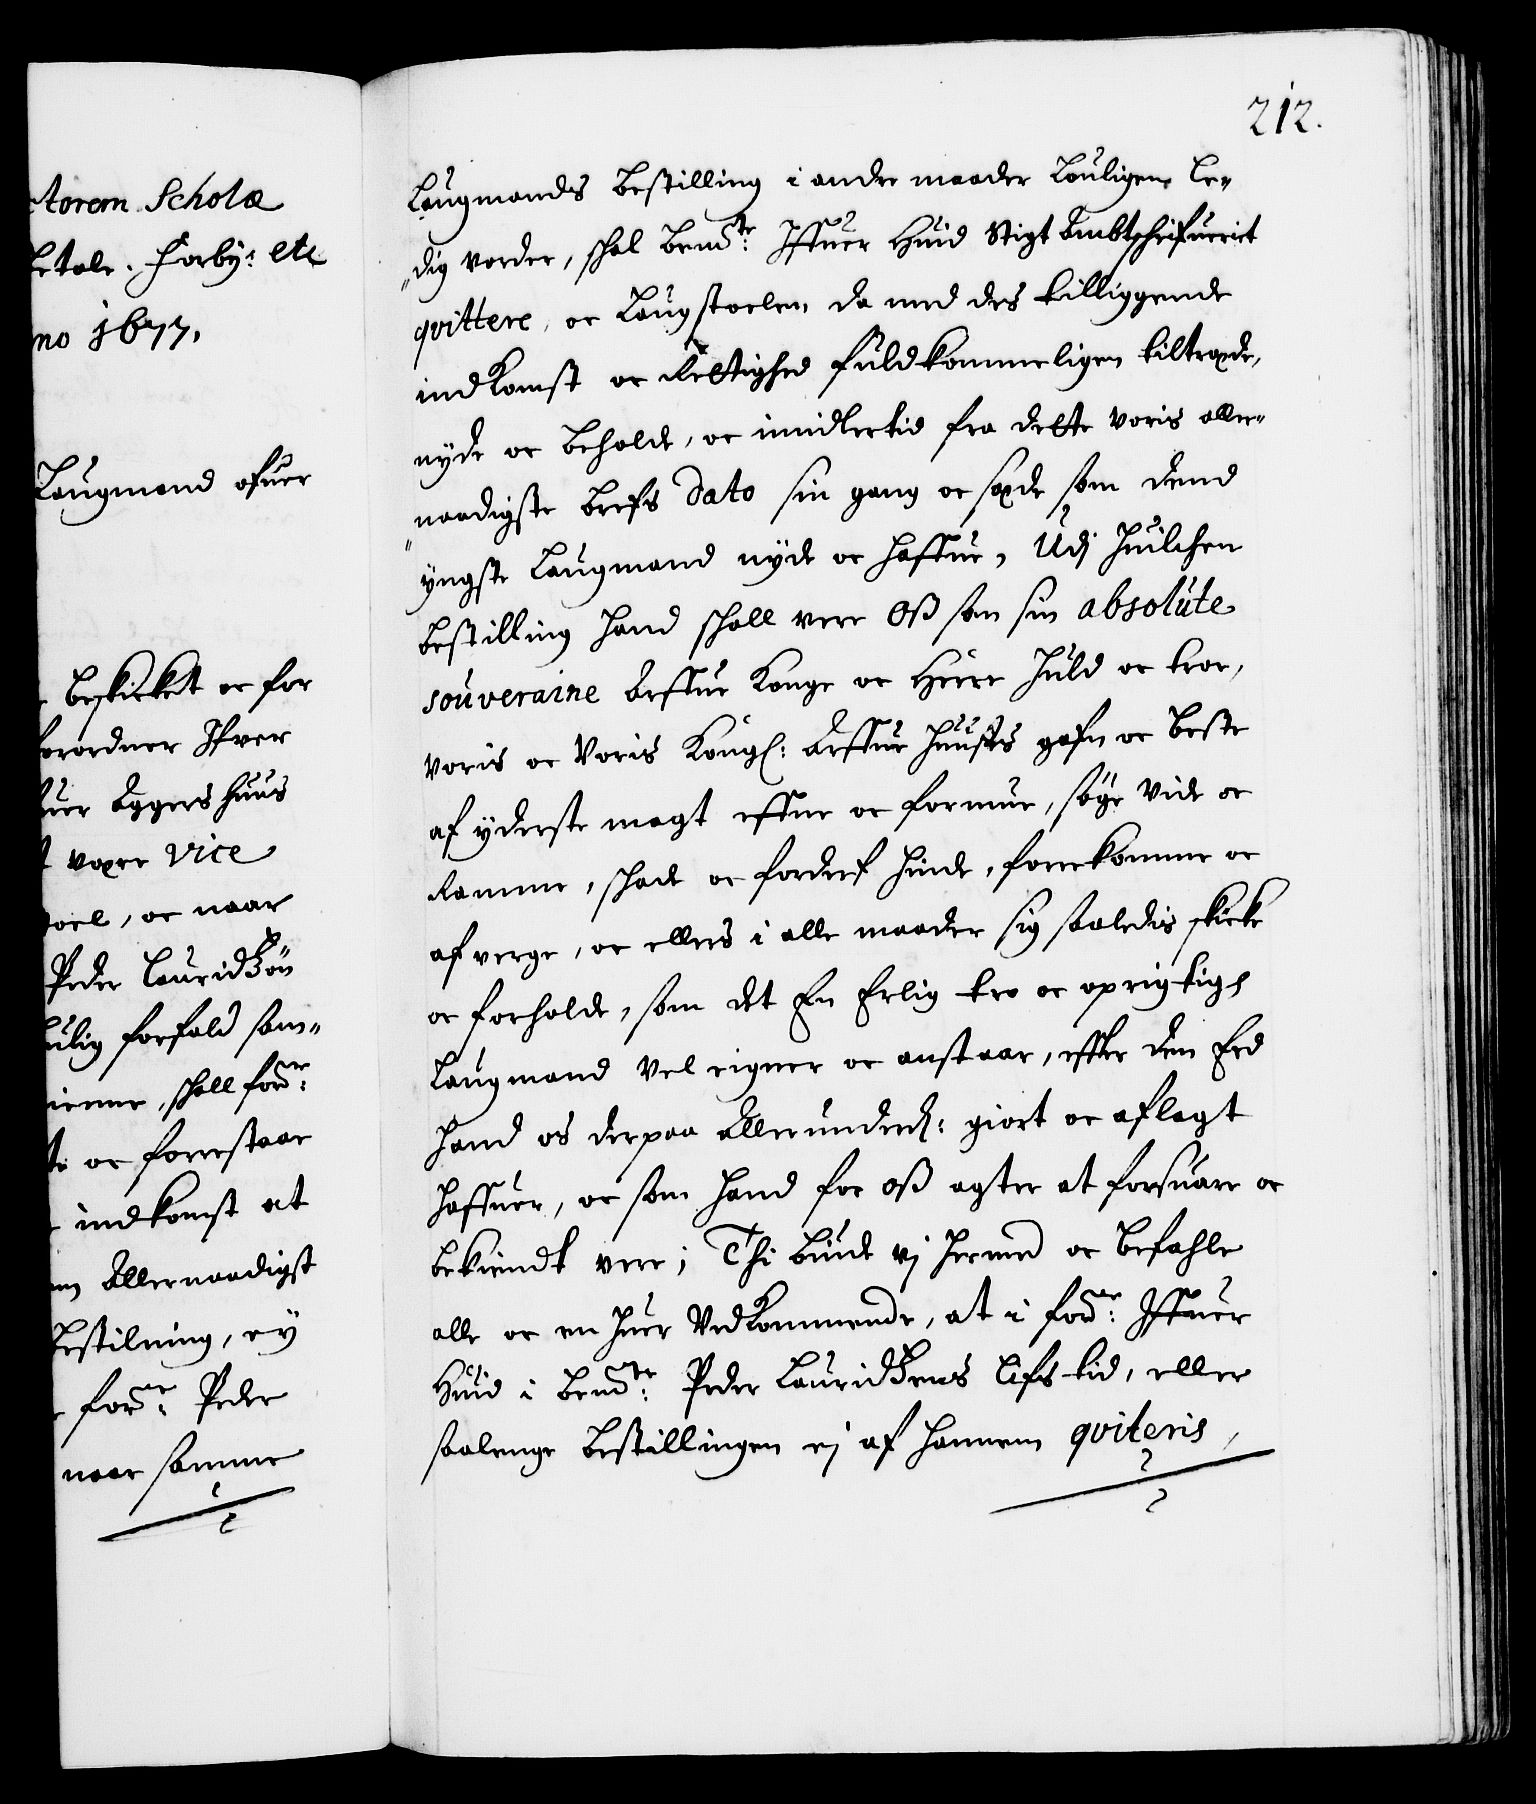 ctorem Scholæ
betale. Forby: etc
nno 1677.
Laugmand ofuer
beskicket oc for
forordner Ifver
fuer Aggershuus
være vice
stoel, oc naar
Peder Lauridzøn
lulig forfald som
tienne, skall fornr:
te oc forrestaar
indkomst at
Allernaadigst
bestilning, ey
fornr: Peder
naar samme
212.
Laugmands bestilling i andre maader louligen le-
dig vorder, skal bemte: Iffuer Huid Stigt Ambtskrifueriet
qvittere, oc Laugstoelen, da med des tilliggende
indkomst oc Rettighed fuldkommeligen tiltræde,
nyde oc beholde, oc imidlertid fra dette voris aller-
naadigste brefs dato sin gang oc sæde som dend
yngste Laugmand nyde oc haffue, Udj huilchen
bestilling hand skall vere oß som sin absolute
souveraine Arffue Konge oc Herre huld oc troe,
voris oc voris Kongl: Arffue huuses gafn oc beste
af yderste magt effne oc formue, søge vide oc
ramme, skade oc forderf hinde, forrekomme oc
afverge, oc ellers i alle maader sig saaledis skicke
oc forholde, som det En Erlig tro oc oprigtige
Laugmand vel eigner oc anstaar, effter den Eed
hand os derpaa allerunderd: giort oc aflagt
haffuer, oc som hand for oß agter at forsuare oc
bekiendt vere; Thi biude vj hermed oc befahle
alle oc en huer vedkommende, at i fornr: Iffuer
Huid i bemte: Peder Lauridzens lifs tid, eller
saalenge bestillingen ej af hannem qviteris,